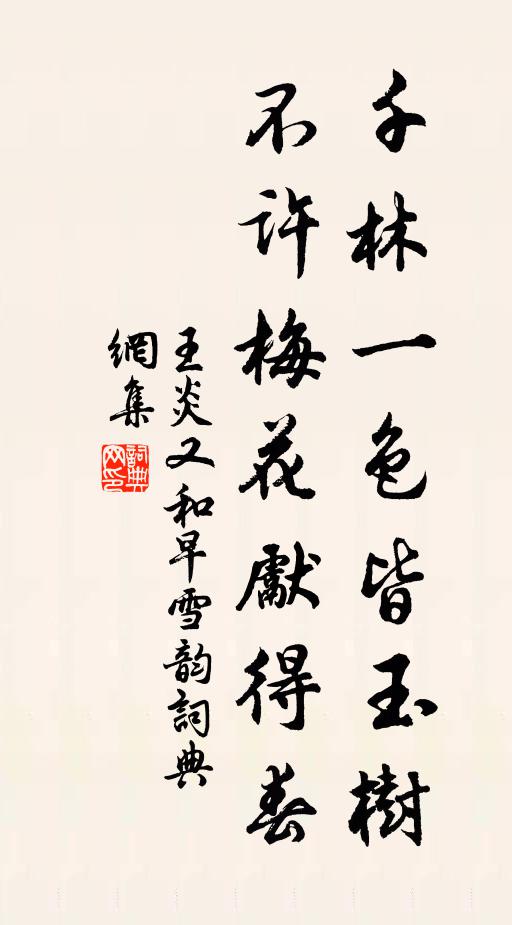 千林一色皆玉樹
不許梅花獻得春
王炎又和早雪韵詞典
網集
詞典
网印